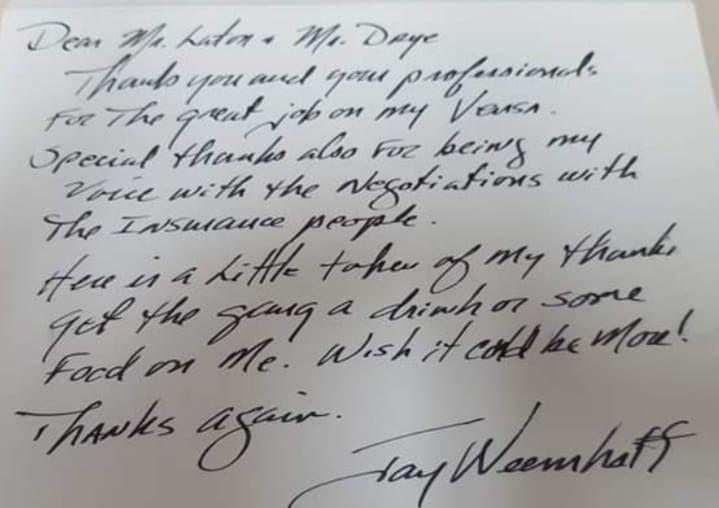 Dear Mr. Laton & Mr. Daye
Thank you and your professionals
For The great job on my Versa.
Special thanks also For being my
Voice with the Negotiations with
The Insurance people.
Here is a Little token of my thanks
get the gang a drink or some
Food on Me. Wish it could be More!
Thanks again.
Jay Weemhoff